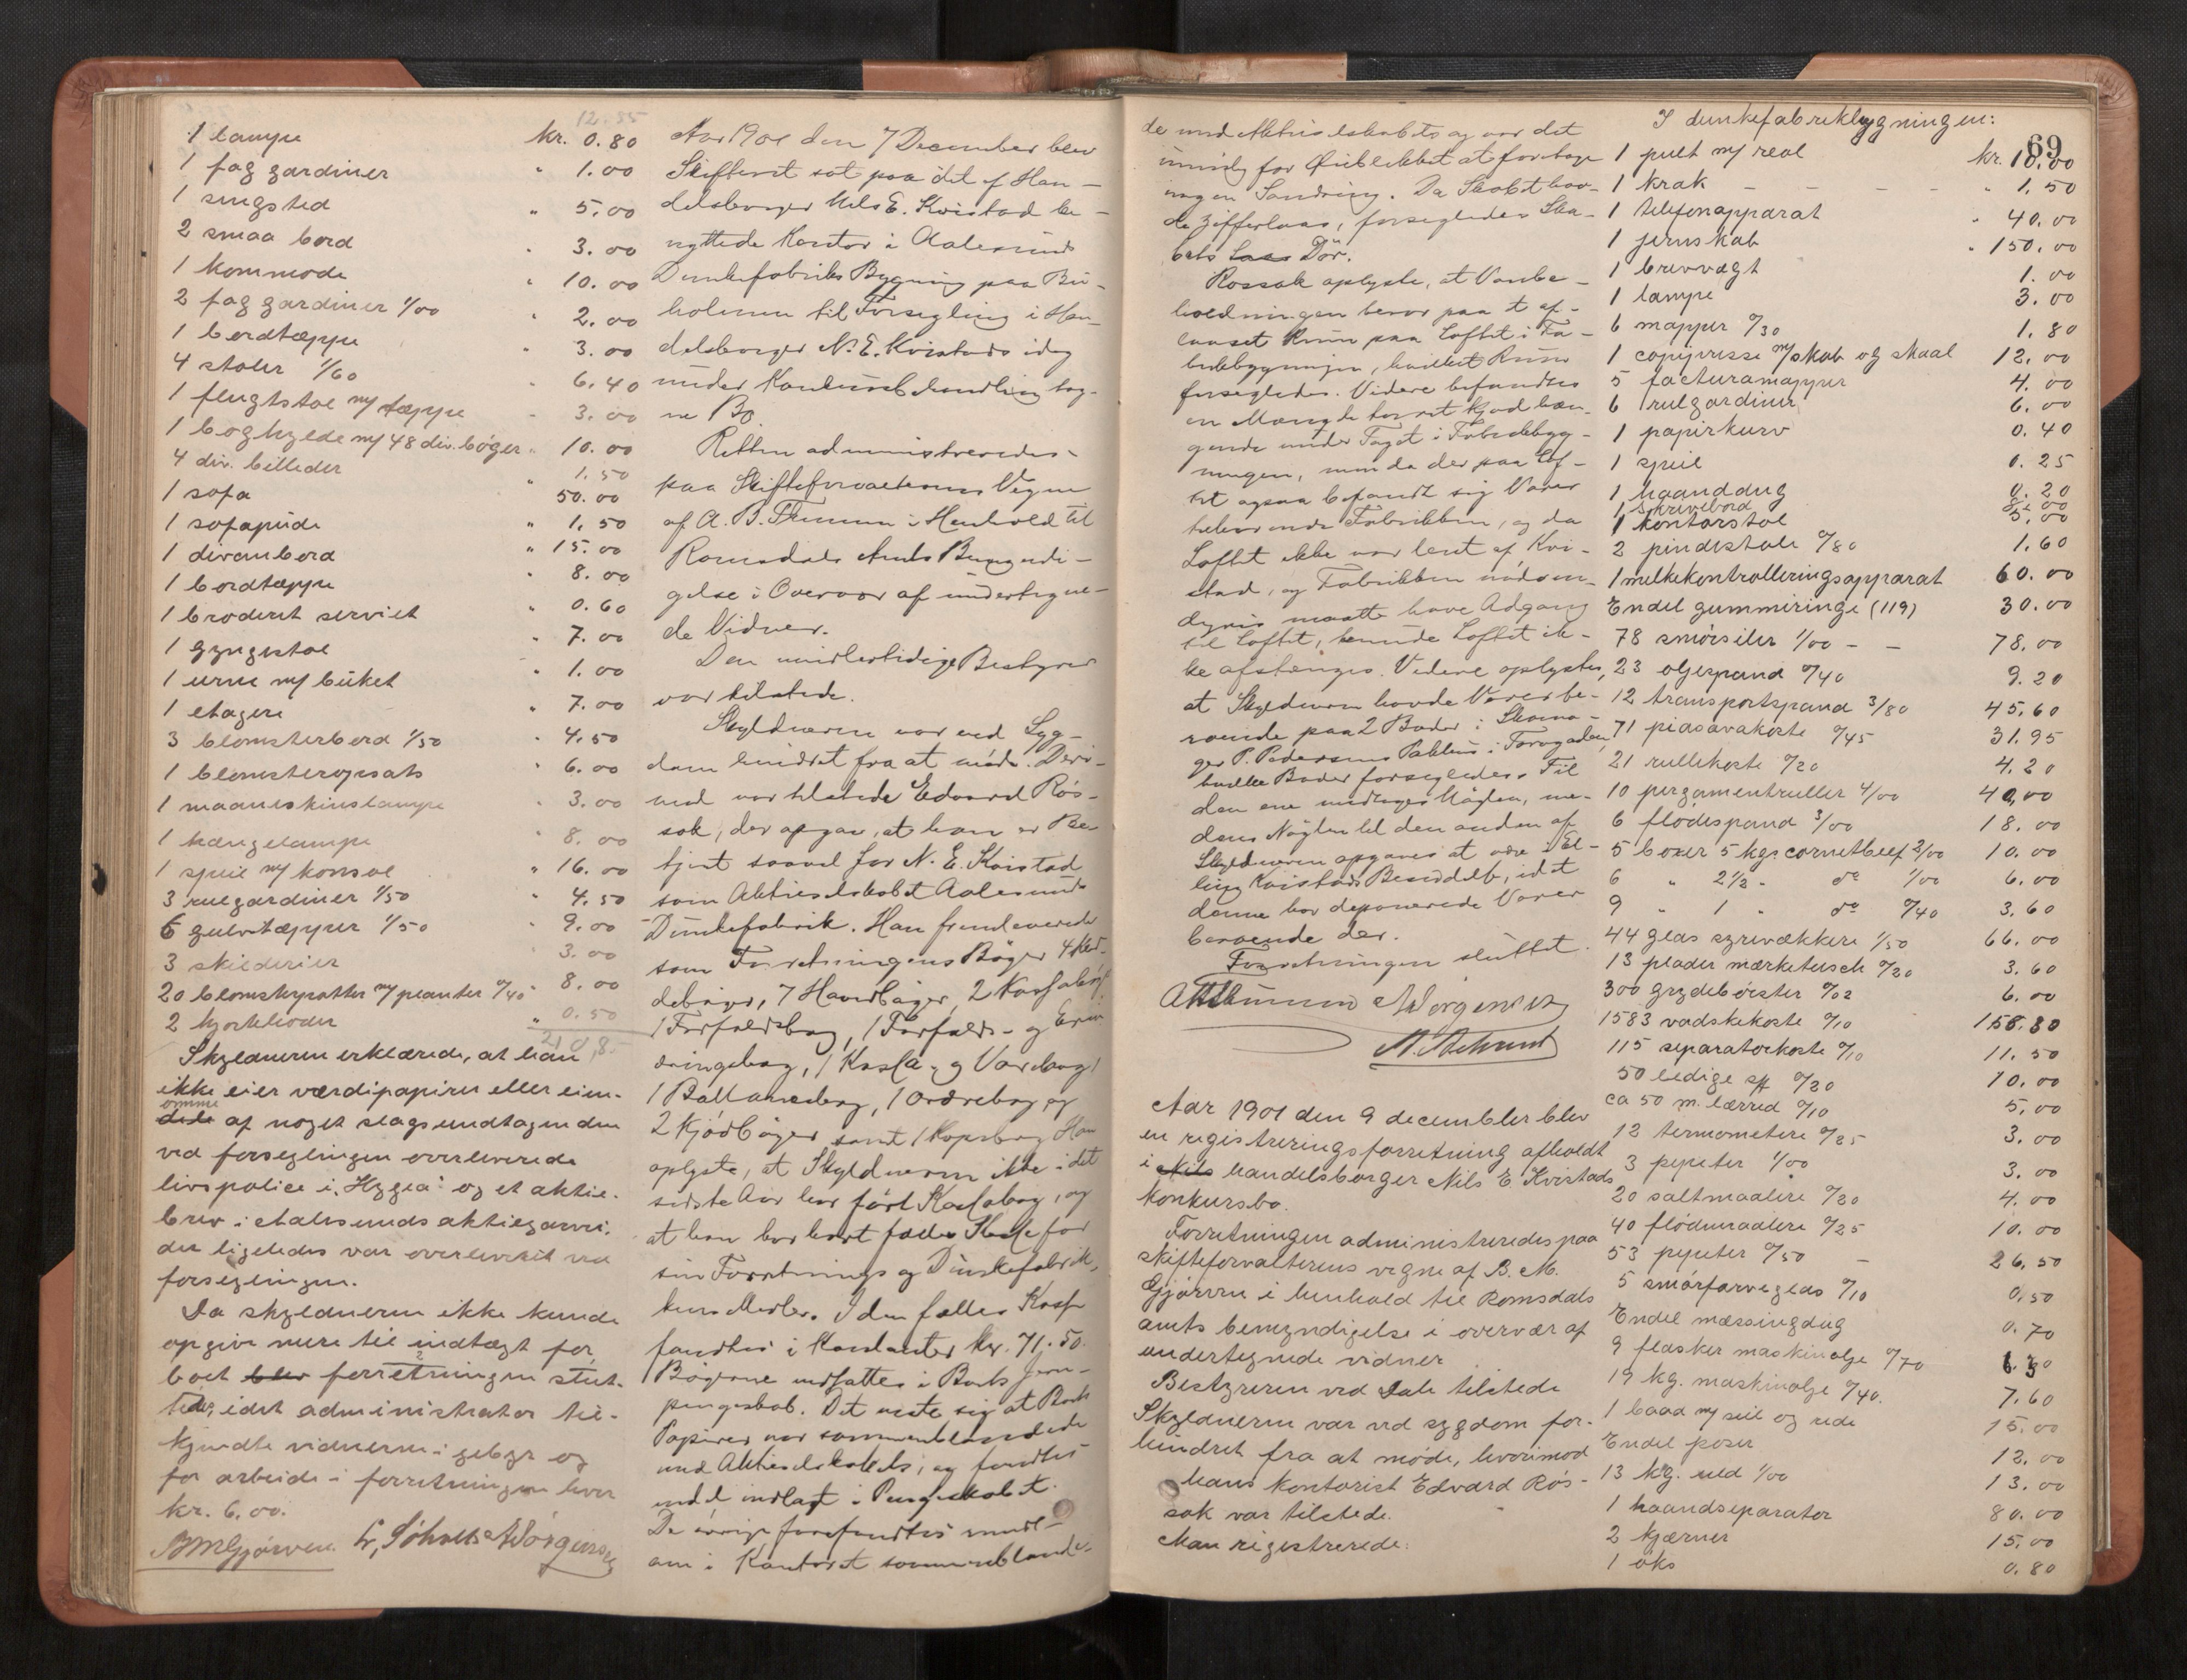 12.55
1 lampe kr. 0.80
1 fag gardiner " 1.00
1 sengsted " 5.00
2 smaa bord " 3.00
1 kommode " 10.00
2 fag gardiner 1/00 " 2.00
1 bordtæppe " 3.00
4 stoler 1/60 " 6.40
1 flugtstol m/ tæppe " 3.00
1 boghylde m/ 48 div. bøger " 10.00
4 div. billeder " 1.50
1 sofa 50.00
1 sofapude " 1.50
1 divanbord " 15.00
1 bordtæppe " 8.00
1 broderet serviet " 0.60
1 gyngestol " 7.00
1 urne m/ buket " 1.00
1 etagere " 7.00
3 blomsterbord 1/50 " 4.50
1 blomsteropsats " 6.00
1 maaneskinslampe " 3.00
1 hængelampe " 8.00
1 speil m/ konsol " 16.00
3 rulgardiner 1/50 " 4.50
6 gulvtæpper 1/50 " 9.00
3 skilderier 3.00
20 blomsterpotter m/ planter 0/40 " 8.00
2 hjorteh " 0.50
Skyldneren erklærede, at han
ikke eier værdipapirer eller eien-
domme af noget slags undtagen den
ved forseglingen overleverede
livspolice i "Hygea" og et aktie-
brev i Aalesunds aktiegarveri,
der ligeledes var overleveret ved
forseglingen.
Da skyldneren ikke kunde
opgive mere til indtægt for
boet blev forretningen slut-
tet, idet administrator til-
kjendte vidnerne i gebyr og
for arbeide i forretningen hver
kr. 6.00.
BMGjørven. L. Søholt A Jörgensen
Aar 1901 den 7 December blev
Skifteret sat paa det af Han-
delsborger Nils E. Kvistad be-
nyttede Kontor i Aalesunds
Dunkefabriks Bygning paa Bu-
holmen til Forsegling i Han-
delsborger N. E. Kvistads idag
under Konkursbehandling tag-
ne Bo.
Retten administreredes
paa Skifteforvalterens Vegne
af A. B. i Henhold til
Romsdals Amts Bemyndi-
gelse i Overvær af undertegne-
de Vidner.
Den midlertidige Bestyrer
var tilstede.
Skyldneren var ved Syg-
dom hindret fra at møde. Deri-
mod var tilstede Edvard Rös-
sok, der opgav, at han er Be-
tjent saavel for N. E. Kvistad
som Aktieselskabet Aalesunds
Dunkefabrik. Han fremleverede
som Forretningens Bøger 4 Klad-
debøger, 7 Hovedbøger, 2 Kassabøger
1 Forfaldsbog, 1 Forfalds- og Erin-
dringsbog, 1 Kassa- og Varebog,
1 Ballancebog, 1 Ordrebog og
2 Kjødbøger samt 1 Kopibog. Han
oplyste, at Skyldneren ikke i det
sidste Aar har ført Kassabog, og
at han har havt fælles Kasse for
sin Forretnings og Dunkefabrik-
kens Midler. I den fælles Kasse
fandtes i Kontanter kr. 71.50.
Bøgerne indsattes i Boets Jern-
pengeskab. Det viste sig at Boets
Papirer var sammenblandede
med Aktieselskabets, og fandtes
endel indlagt i Pengeskabet.
De øvrige forefandtes rundt
om i Kontoret sammenblande-
de med Aktieselskabets og var det
umulig for Øieblikket at foretage
nogen Sondring. Da Skabet hav-
de Zifferlaas, forsegledes Ska-
bets Laas Dør.
Rossok oplyste, at Vare
beror paa et af-
laaset Rum paa Loftet i Fa-
brikbygningen, hvilket Rum
forsegledes. Videre befandtes
en Mængde tørret Kjød hæn-
gende under Taget i Fabrikbyg-
ningen, men da der paa Lof-
tet ogsaa befandt sig Varer
tilhørende Fabrikken, og da
Loftet ikke var leiet af Kvi-
stad, og Fabrikken nødven-
digvis maatte have Adgang
til Loftet, kunde Loftet ik-
ke afstænges. Videre oplystes,
at Skyldneren havde Varer be-
roende paa 2 Boder i Skoma-
ger P. Pedersens Pakhus i Torvgaden,
hvilke Boder forsegledes. Til
den ene medtoges Nøglen, me-
dens Nøglen til den anden af
Skyldneren opgaves at være i El-
ling Kvistads Besiddelse, idet
denne har deponerede Varer
beroende der.
Forretningen sluttet.
A Jörgensen
Aar 1901 den 9 december blev
en registreringsforretning afholdt
i Nils handelsborger Nils E. Kvistads
konkursbo.
Forretningen administreredes paa
skifteforvalterens vegne af B. M.
Gjørven i henhold til Romsdals
amts bemyndigelse i overvær af
undertegnede vidner
Bestyreren ved Dale tilstede
Skyldneren var ved sygdom for-
hindret fra at møde, hvorimod
hans kontorist Edvard Røs-
sok var tilstede.
Man registrerede:
69
I dunkefabrikbygningen:
1 pult m/ reol kr. 10.00
1 krak - - - - " 1.50
1 telefonapparat " 40.00
1 jernskab " 150.00
1 brevvægt 1.00
1 lampe 3.00
6 mapper 0/30 1.80
1 copipresse m/ skab og skaal 12.00
5 facturamapper 4.00
6 rulgardiner 6.00
1 papirkurv 0.40
1 speil 0.25
1 haanddug 0.20
1 skrivebord 8.00
1 kontorstol 5.00
2 pindestole 0/80 1.60
1 melkekontrolleringsapparat 60.00
Endel gummiringe (119) 30.00
78 smørsiler 1/00 - - 78.00
23 oljespand 0/40 9.20
12 transportspand 3/80 45.60
71 piasavakoste 0/45 31.95
21 rullekoste 0/20 4.20
10 pergamentruller 4/00 40.00
6 flødespand 3/00 18.00
5 boxer 5 kgs cornetbeef 2/00 10.00
6 " 2½ " do 1/00 6.00
9 " 1 " do 0/40 3.60
44 glas syrevækkere 1/50 66.00
13 plader mærketusch 0/20 3.60
300 grydebørster 0/02 6.00
1583 vadskekoste 0/10 158.80
115 separatorkoste 0/10 11.50
50 ledige sp 0/20 10.00
ca 50 m. lærred 0/10 5.00
12 termometere 0/25 3.00
3 pepeter 1/00 3.00
20 saltmaalere 0/20 4.00
40 flødemaalere 0/25 10.00
53 pepeter 0/50 - 26.50
5 smørfarveglas 0/10 0.50
Endel messingdug 0.70
9 flasker maskinolje 0/70 6.30
19 kg. maskinolje 0/40. 7.60
1 baad m/ seil og rede 15.00
Endel poser 12.00
13 kg. uld 1/00 13.00
1 haandseparator 80.00
2 kjærner 15.00
1 øks 0.80